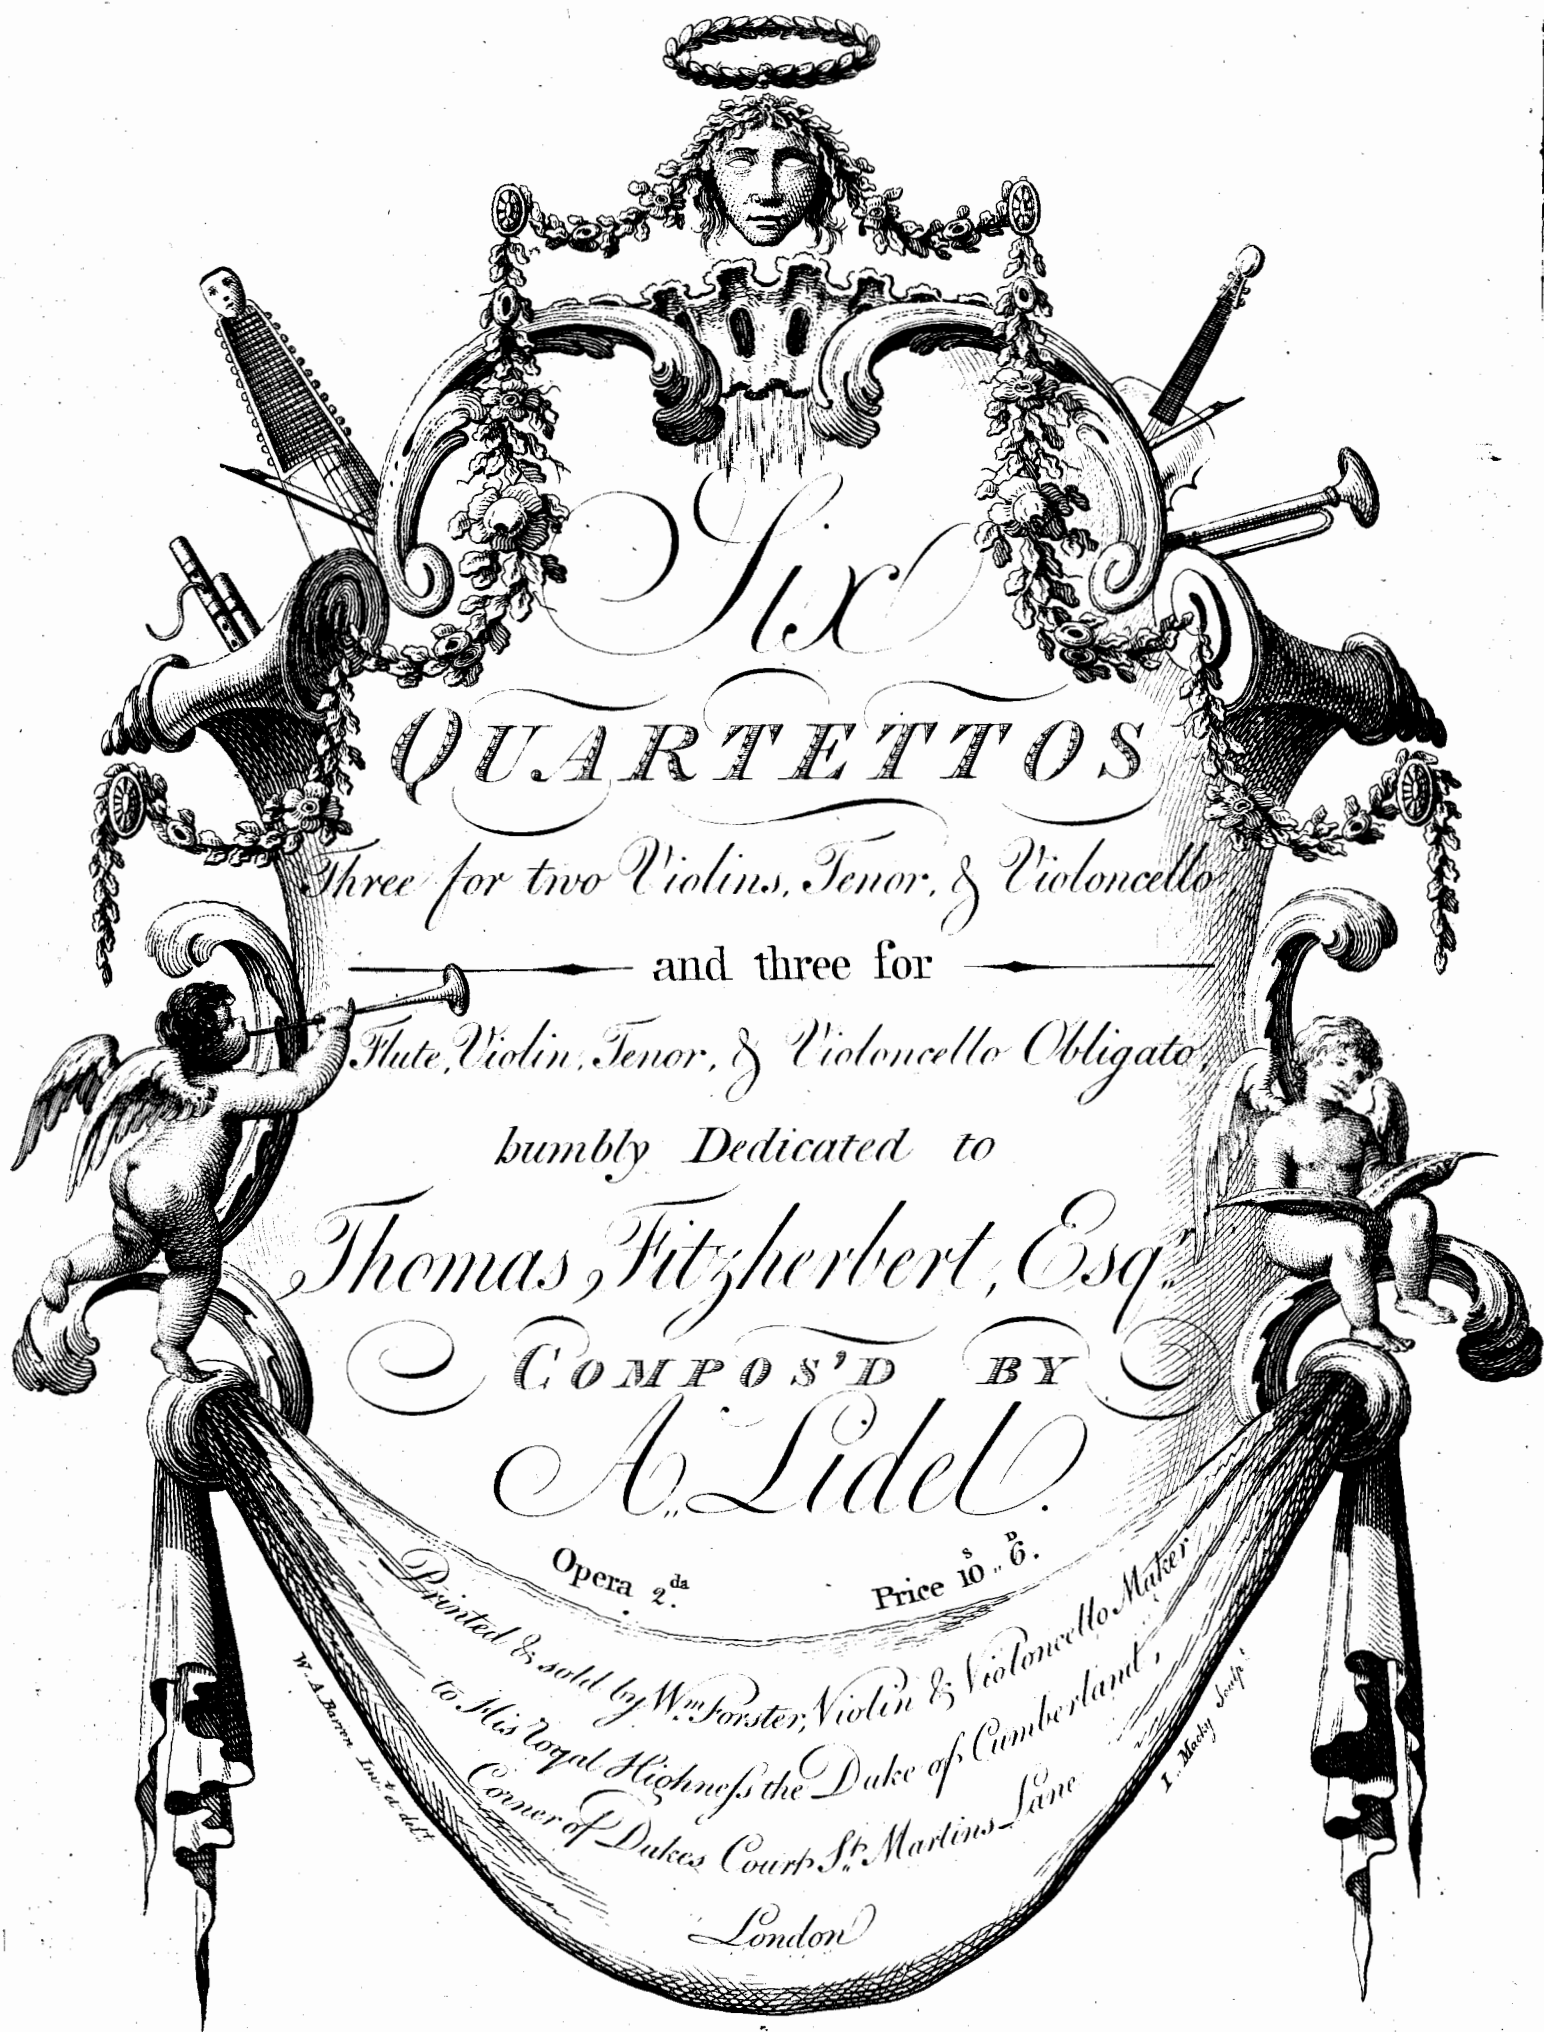 Six
QUARTETTOS
Three for two Violins, Tenor, & Violoncello,
and three for
Flute, Violin, Tenor, & Violoncello Obligato,
humbly Dedicated to
Thomas Fitzherbert, Esqr.
COMPOS'D BY
A,, Lidel.
Opera 2.da Price 10s,, 6D.
Printed & sold by Wm. Forster, Violin & Violoncello Maker
to His Royal Highneſs the Duke of Cumberland,
Corner of Dukes Court St. Martins Lane
London
W. A. Barron Invt. & delt.
I. Macky Sculpt.